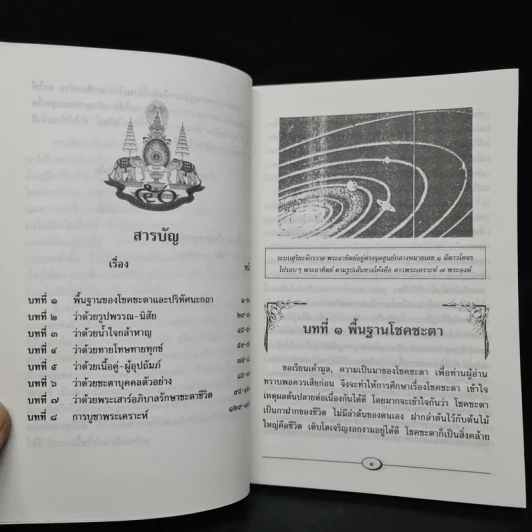 สารบัญ
เรื่อง
บทที่ ๑ พื้นฐานของโชคชะตาและปริทัศนะกถา
บทที่ ๒ ว่าด้วยรูปพรรณ-นิสัย
บทที่ ๓ ว่าด้วยน้ำใจกล้าหาญ
บทที่ ๔ ว่าด้วยทายโทษทายทุกข์
บทที่ ๕ ว่าด้วยเนื้อคู่-ผู้อุปถัมภ์
บทที่ ๖ ว่าด้วยชะตาบุคคลตัวอย่าง
บทที่ ๗ ว่าด้วยพระเสาร์อภิบาลรักษาชะตาชีวิต
บทที่ ๘ การบูชาพระเคราะห์
ระบบสุริยะจักรวาล พระอาทิตย์อยู่ตรงจุดศูนย์กลางหมายเลข ๑ มีดาวโคจร
ไปรอบๆ พระอาทิตย์ ตามรูปเส้นทางโค้งคือ ดาวพระเคราะห์ ๗ พระองค์
บทที่ ๑ พื้นฐานโชคชะตา
ขอเรียนเค้ามูล, ความเป็นมาของโชคชะตา เพื่อท่านผู้อ่าน
ทราบพอควรเสียก่อน จึงจะทำให้การศึกษาเรื่องโชคชะตา เข้าใจ
เหตุผลต้นปลายต่อเนื่องกันได้ดี โดยมากจะเข้าใจกันว่า โชคชะตา
เป็นกาฝากของชีวิต ไม่มีลำต้นของตนเอง ฝากลำต้นไว้กับต้นไม้
ใหญ่คือชีวิต เติบโตเจริญงอกงามอยู่ได้ดี โชคชะตาก็เป็นสิ่งคล้าย
๑